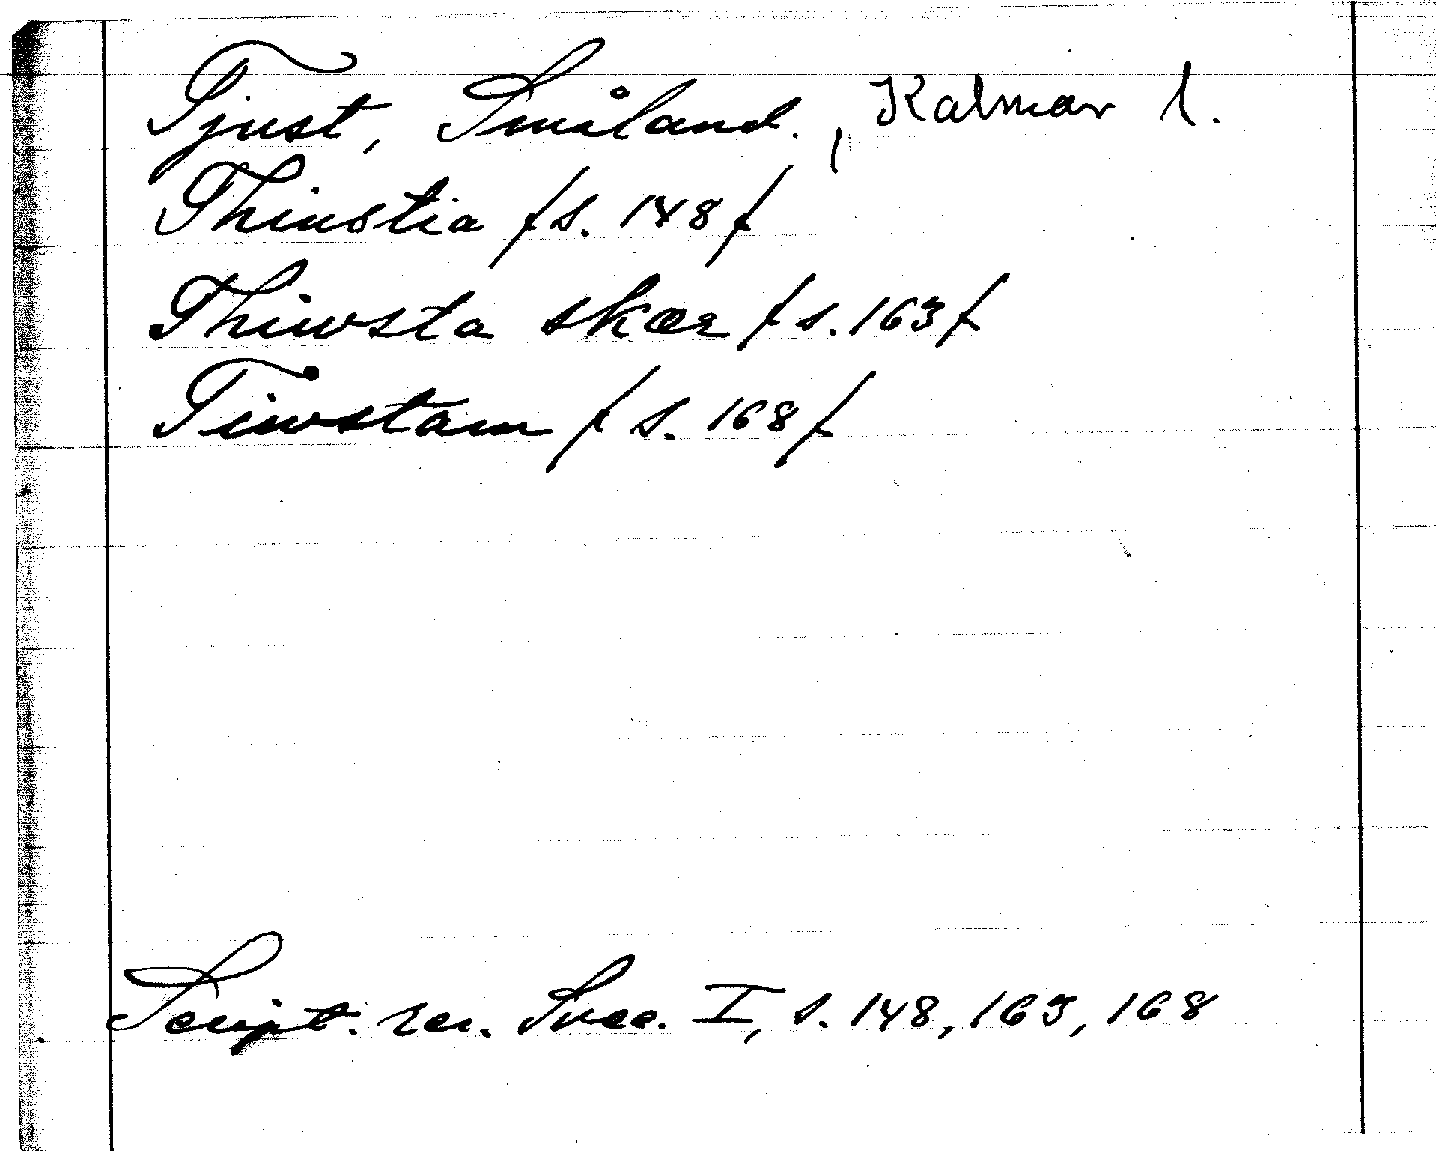 Tjust, Småland., Kalmar l.
Thiustia /s. 148/
Thiwsta skær /s. 163/
Tiwstam /s. 168/
Script. rer. Svec. I, s. 148, 163, 168